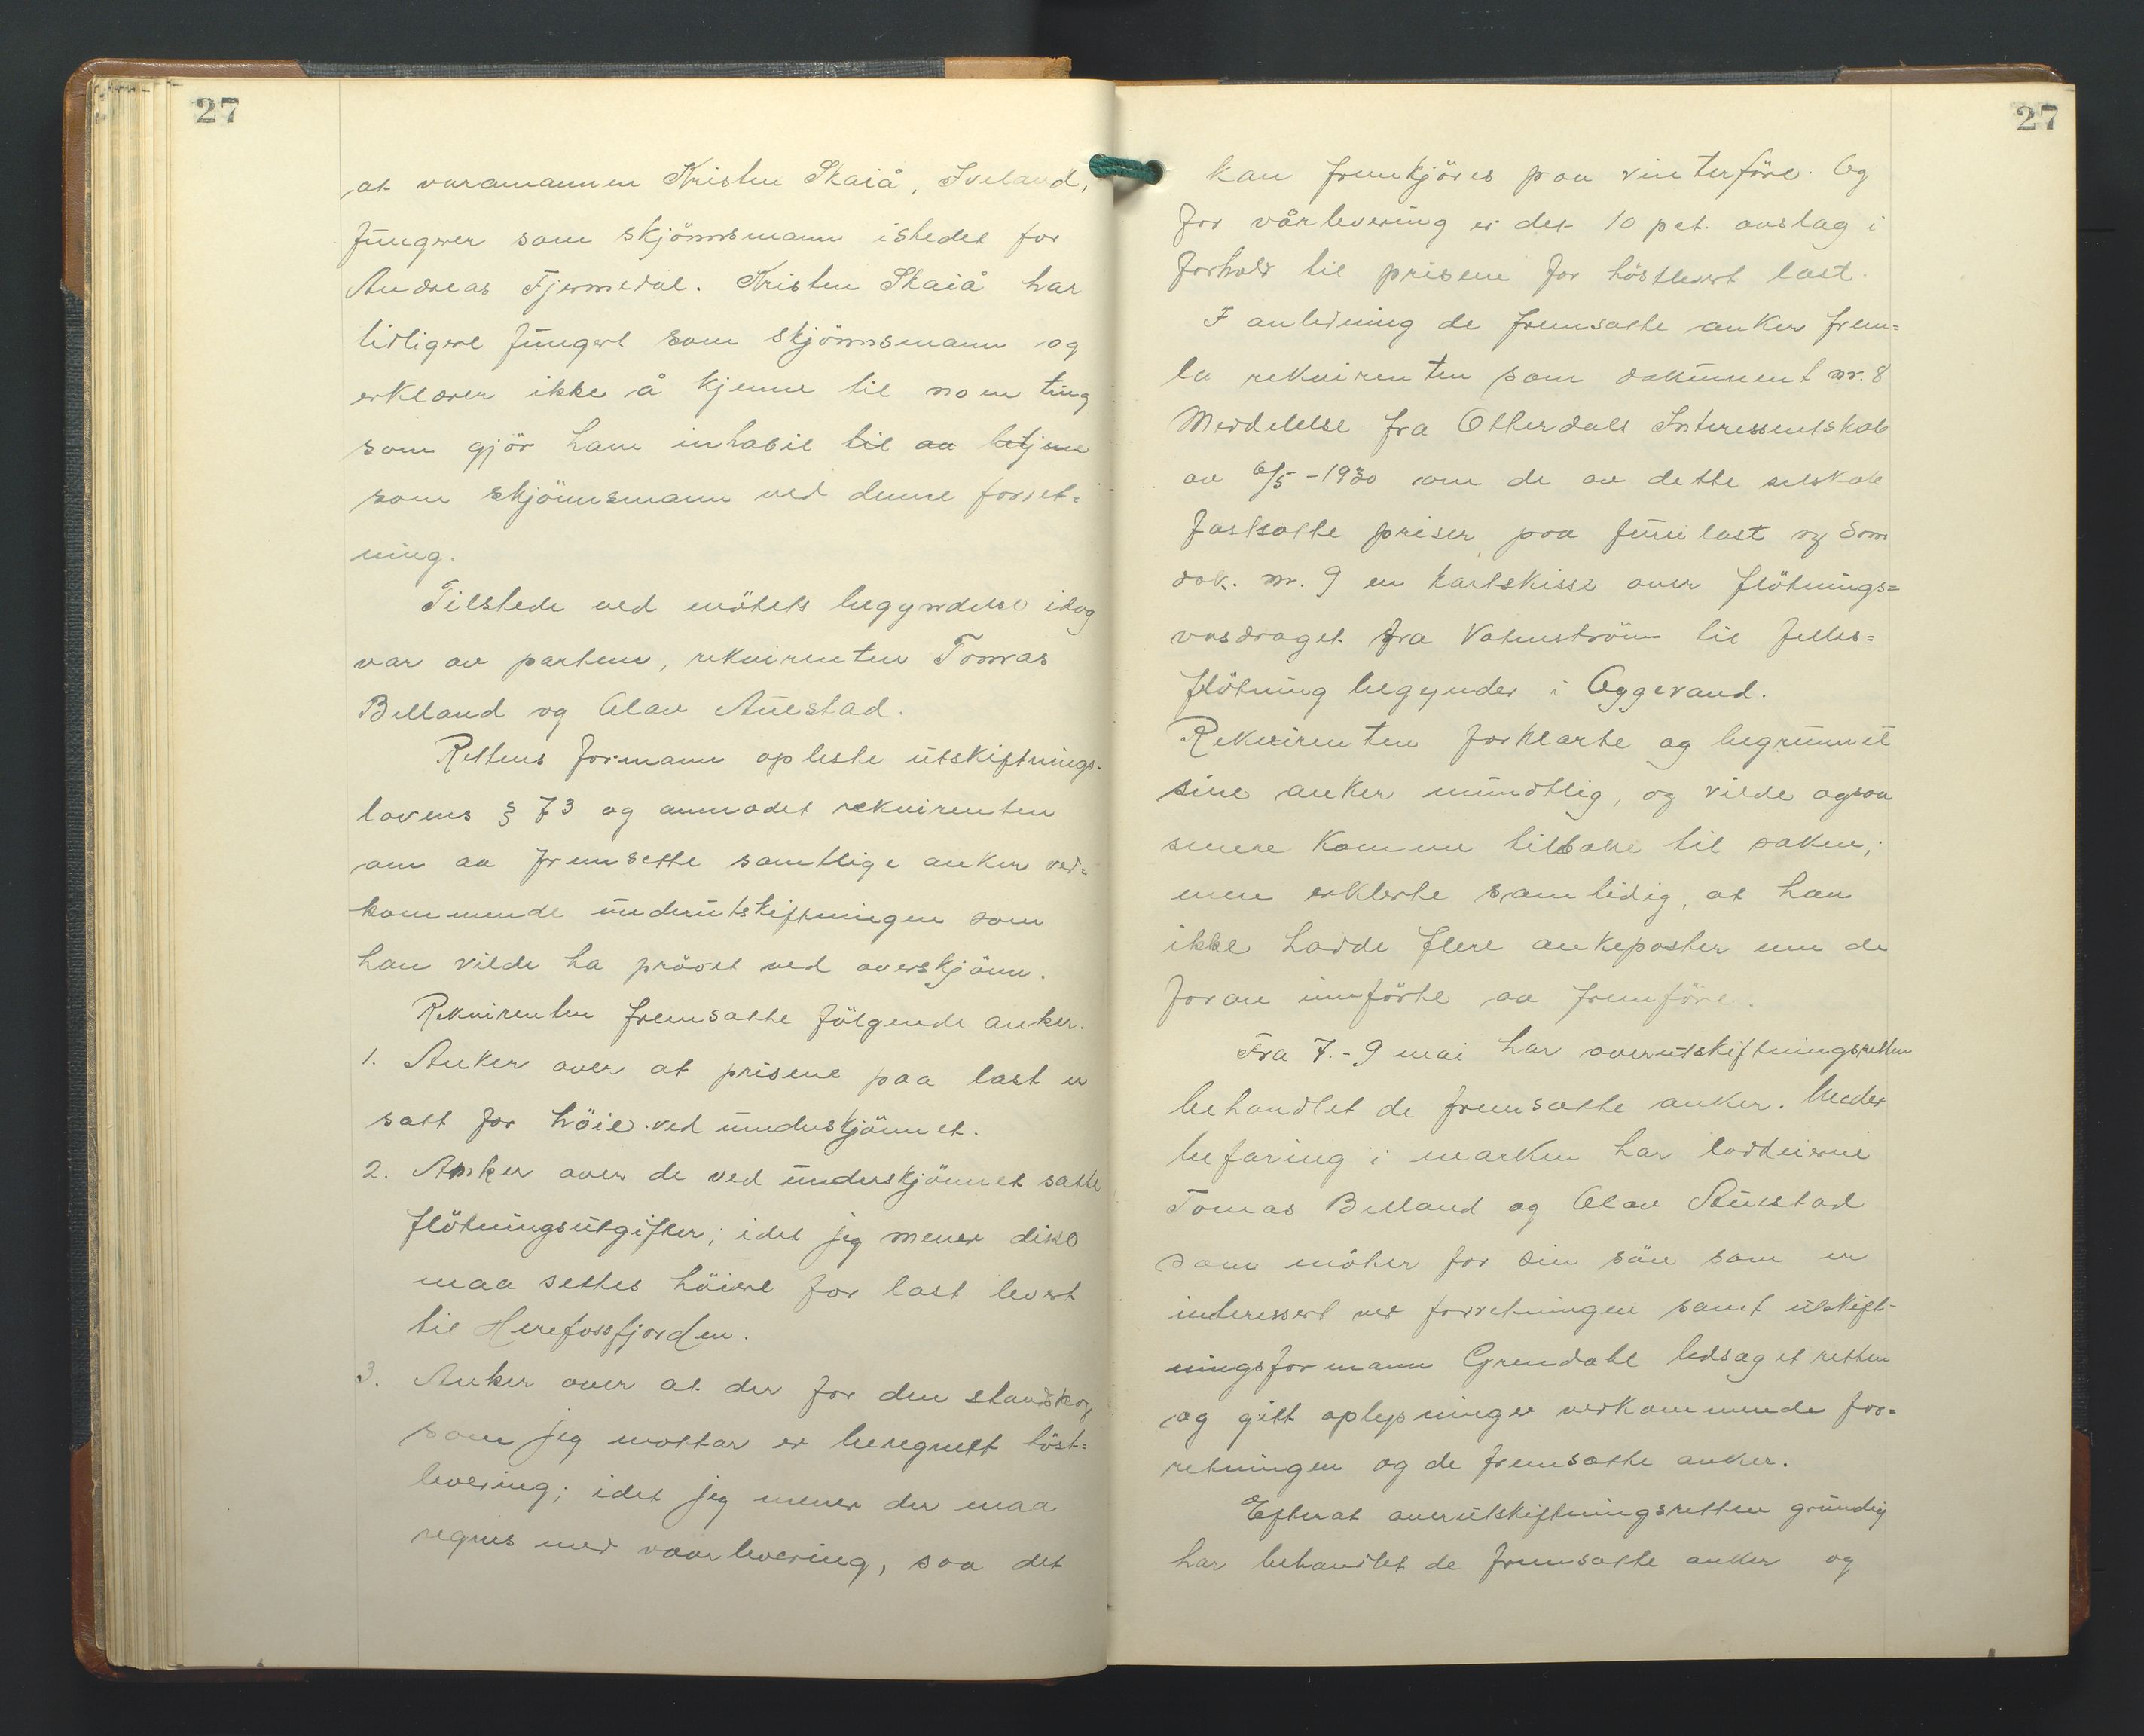 27
at varamannen Kristen Skaiå, Iveland,
fungerer som skjönnsmann istedet for
Andreas Fjermedal. Kristen Skaiå har
tidligere fungert som skjönnsmann og
erklærer ikke å kjenne til noen ting
som gjör ham inhabil til aa betjene
som skjönnsmann ved denne forret=
ning.
Tilstede ved mötets begyndelse idag
var av partene, rekvirenten Tomas
Belland og Olav Austad.
Rettens formann opleste utskiftnings-
lovens § 73 og anmodet rekvirenten
om aa fremsette samtlige anker ved=
kommende underutskiftningen som
han vilde ha prövet ved overskjönn.
Rekvirenten fremsatte fölgende anker.
1. Anker over at prisene paa last er
satt for höie ved underskjönnet.
2. Anker over de ved underskjönnet satte
flötningsutgifter; idet jeg mener disse
maa settes höiere for last levert
til Herefossfjorden.
3. Anker over at der for den standskog
som jeg mottar er beregnett höst=
levering; idet jeg mener der maa
regnes med vaarlevering, saa det
27
kan fremkjöres paa vinterföre. Og
for vårlevering er det 10 pct. avslag i
forhold til prisene for höstlevert last.
I anledning de fremsatte anker frem=
la rekvirenten som dokument nr. 8
Meddelelse fra Otterdals Interessentskab
av 6/5-1930 om de av dette selskab
fastsatte priser paa juni last og som
dok. nr. 9 en kartskisse over flötnings=
vasdraget fra Vatneström til felles=
flötning begynder i Oggevand.
Rekvirenten forklarte og begrunnet
sine anker mundtlig, og vilde ogsaa
senere komme tilbake til saken;
men erklerte samtidig, at han
ikke hadde flere ankeposter enn de
foran innförte aa fremföre.
Fra 7.-9 mai har overutskiftningsretten
behandlet de fremsatte anker. Under
befaring i marken har loddeierne
Tomas Belland og Olav Austad
som möter for sin sön som er
interessert ved forretningen samt utskift-
ningsformann Grendahl ledsaget retten
og gitt oplysninger vedkommende for=
retningen og de fremsatte anker.
Efterat overutskiftningsretten grundig
har behandlet de fremsatte anker og